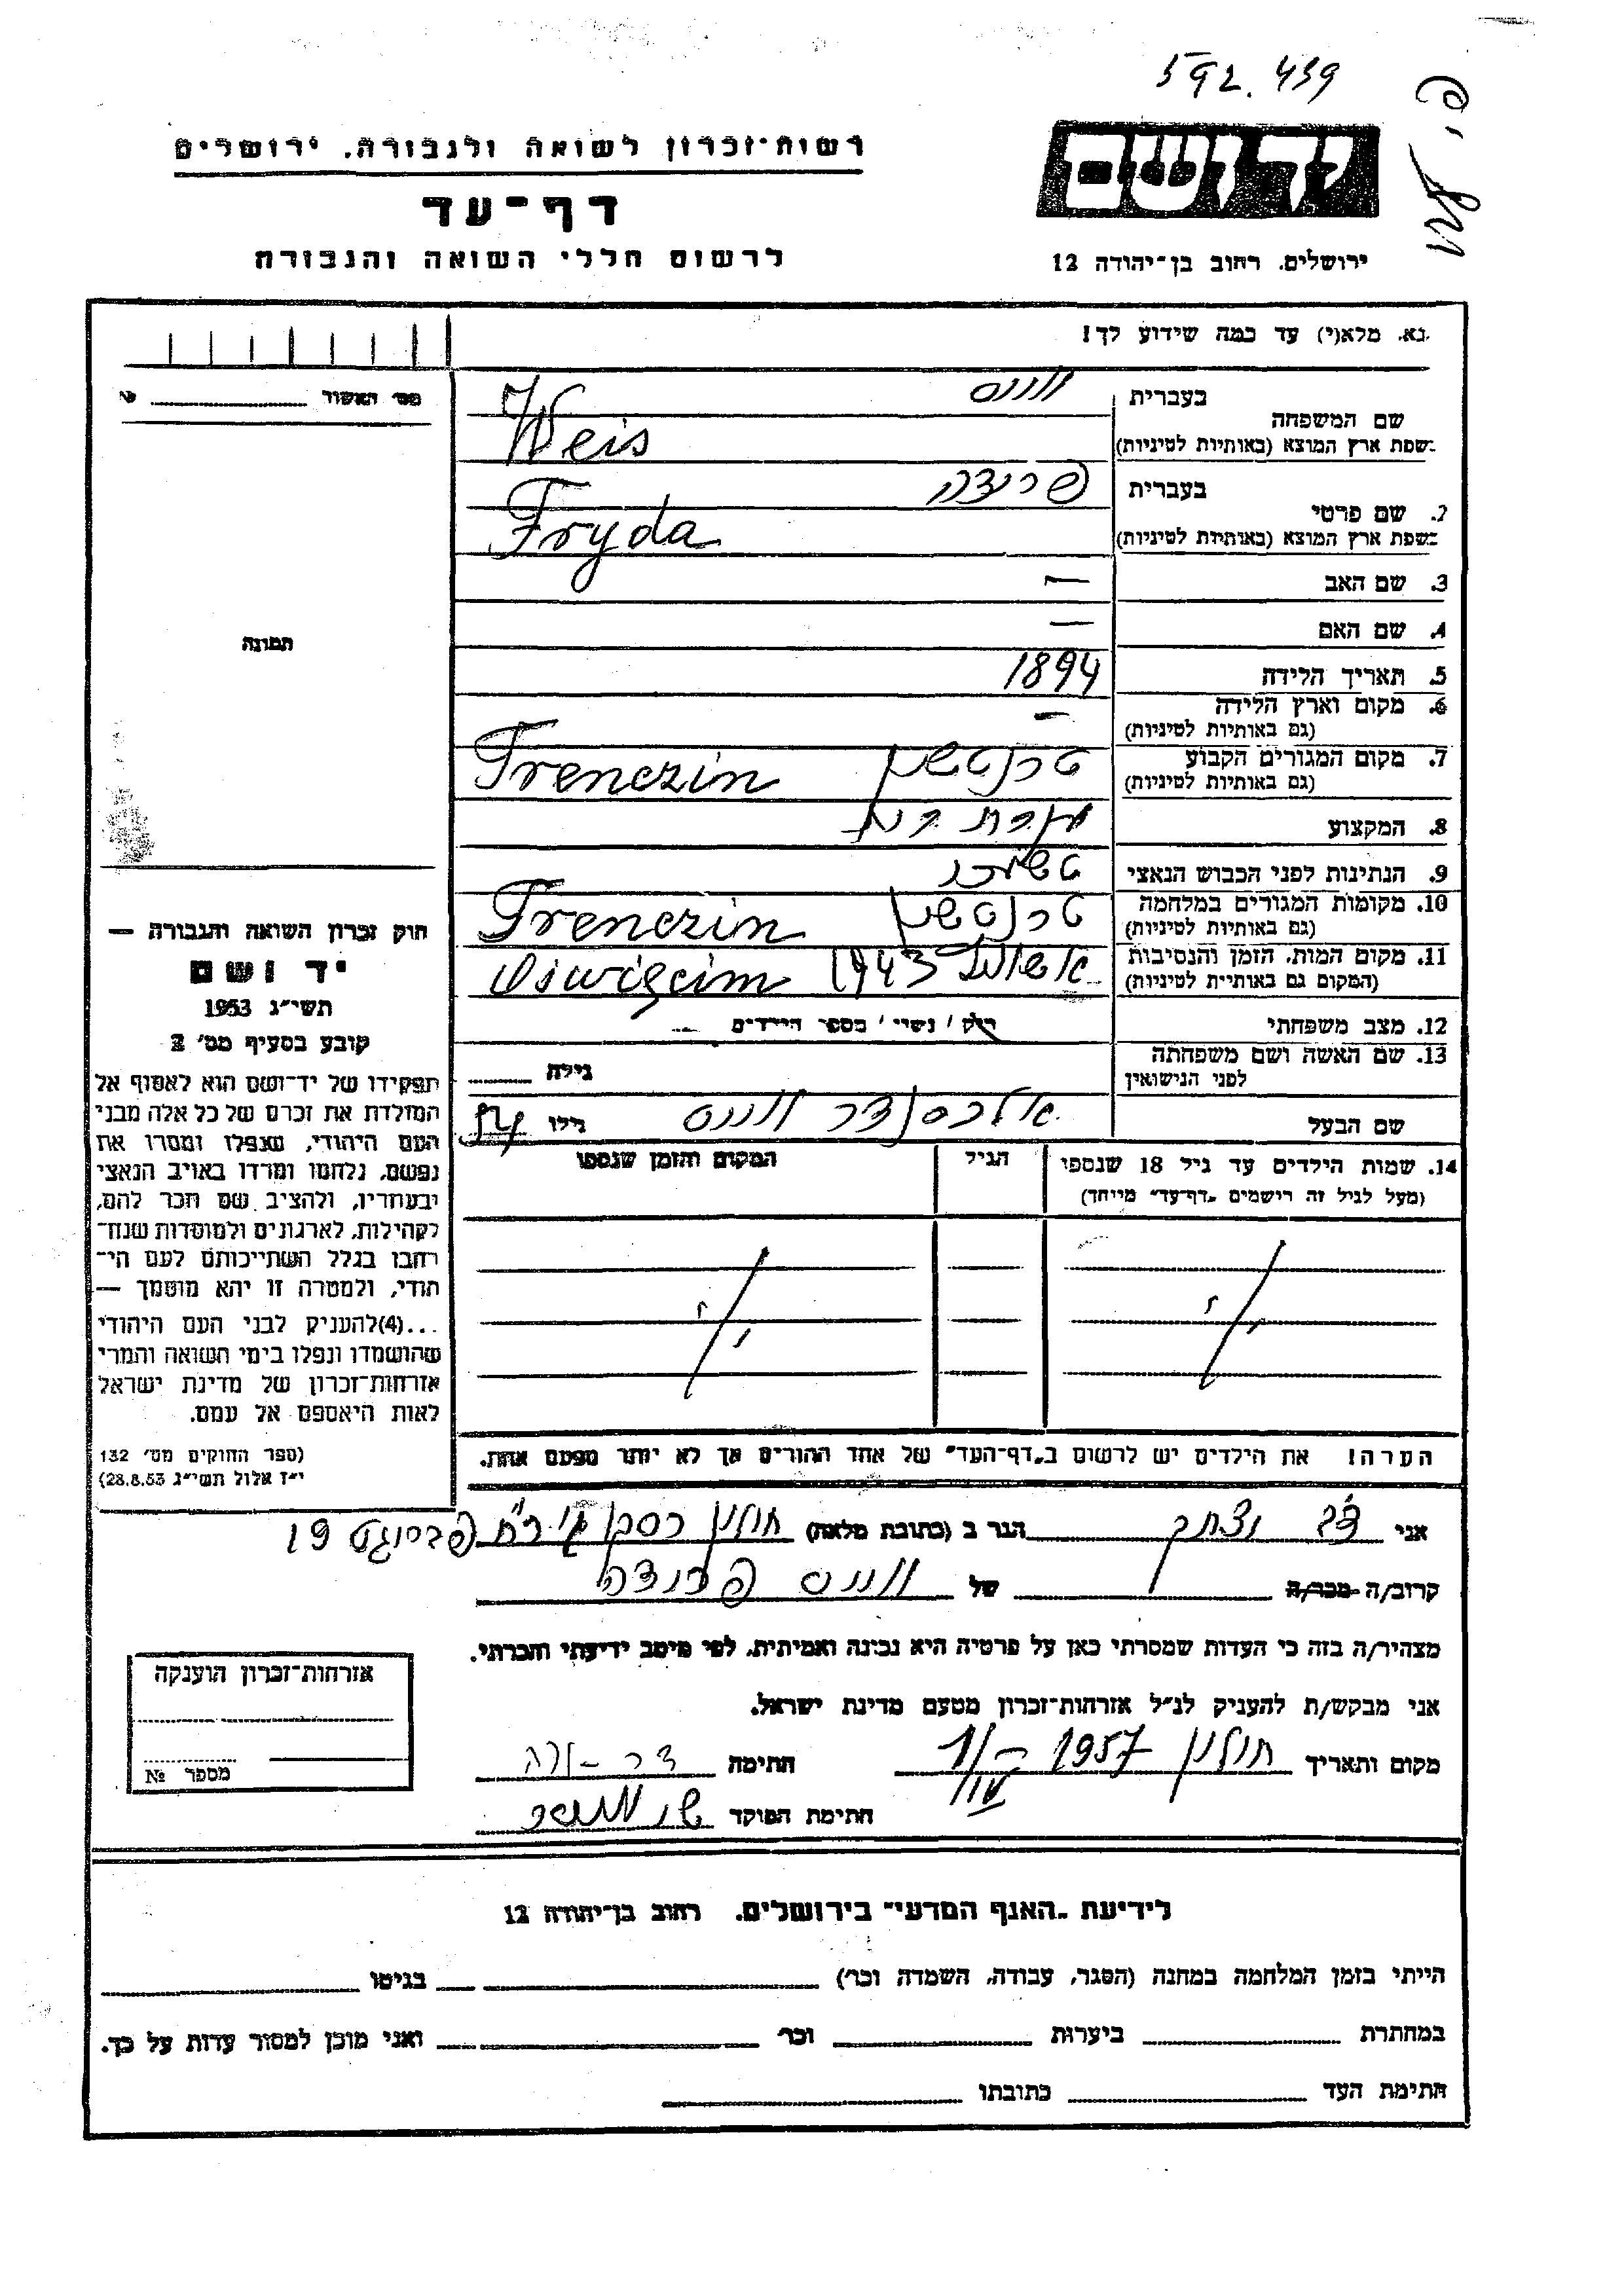 592.439
רשות־זכרון לשואה ולגבורה, ירושלים
דף־עד
לרשום חללי השואה והגבורה
יד ושם
ירושלים, רחוב בן־יהודה 12
נא מלא(י) עד כמה שידוע לך!
מס' האשור №
שם המשפחה
בעברית ווייס
בשפת ארץ המוצא (באותיות לטיניות) Weis
2. שם פרטי
בעברית פרידה
בשפת ארץ המוצא (באותיות לטיניות) Fryda
3. שם האב —
4. שם האם —
5. תאריך הלידה 1894
6. מקום וארץ הלידה —
(גם באותיות לטיניות)
7. מקום המגורים הקבוע טרנטשין Trenczin
(גם באותיות לטיניות)
8. המקצוע עקרת בית
9. הנתינות לפני הכבוש הנאצי
10. מקומות המגורים במלחמה טרנטשין Trenczin
(גם באותיות לטיניות)
11. מקום המות, הזמן והנסיבות 1943 Oświęcim
(המקום גם באותיות לטיניות)
12. מצב משפחתי רוק / נשוי / מספר הילדים
13. שם האשה ושם משפחתה
לפני הנישואין
גילה
שם הבעל אלכסנדר ווייס גילו 54
14. שמות הילדים עד גיל 18 שנספו
(מעל לגיל זה רישמים „דף־עד" מייחד)
הגיל
המקום והזמן שנספו
הערה! את הילדים יש לרשום ב„דף־העד" של אחד ההורים אך לא יותר מפעם אחת.
תמונה
חוק זכרון השואה והגבורה —
יד ושם
תשי"ג 1953
קובע בסעיף מס' 2
תפקידו של יד־ושם הוא לאסוף אל
המולדת את זכרם של כל אלה מבני
העם היהודי, שנפלו ומסרו את
נפשם, נלחמו ומרדו באויב הנאצי
ובעוזריו, ולהציב שם וזכר להם,
לקהילות, לארגונים ולמוסדות שנח־
רחבו בגלל השתייכותם לעם הי־
הודי, ולמטרה זו יהא מוסמך —
...(4)להעניק לבני העם היהודי
שהושמדו ונפלו בימי השואה והמרי
אזרחות־זכרון של מדינת ישראל
לאות היאספם אל עמם.
(ספר החוקים מס' 132
י"ז אלול תשי"ג 28.8.53)
אני דב יצחק הגר ב (כתובת מלאה) חולון 19
קרוב/ה מכר/ה של ווייס פרידה
מצהיר/ה בזה כי העדות שמסרתי כאן על פרטיה היא נכונה ואמיתית, לפי מיטב ידיעתי והכרתי.
אני מבקש/ת להעניק לנ"ל אזרחות־זכרון מטעם מדינת ישראל.
מקום ותאריך חולון 1957 חתימה
חתימת הפוקד
אזרחות־זכרון הוענקה
מספר №
לידיעת „האגף המדעי" בירושלים, רחוב בן־יהודה 12
הייתי בזמן המלחמה במחנה (הסגר, עבודה, השמדה וכר') בגיטו
במחתרת ביערות וכר' ואני מוכן למסור עדות על כך.
חתימת העד כתובתו